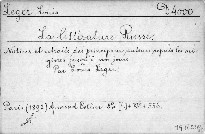 Leger Louis
24000
La littérature Russe.
Notices et extraits des principaux auteurs depuis les ori-
gines jusqu'à nos jours
Par Louis Leger.
Paris (1892) Armand Colin 8° [4]+XII+556.